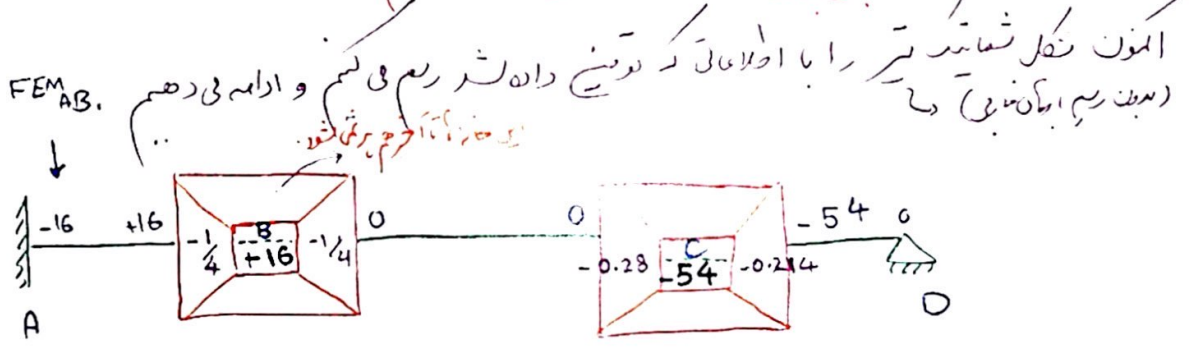 اکنون شکل شماتیک تیر را با اطلاعاتی که توضیح داده شد رسم می کنیم و ادامه می دهیم
(بدون رسم ابعاد
FEM AB.
-16 +16 -1/4 B +16 -1/4 0 0 -0.28 C -54 -0.214 -54 0
A D